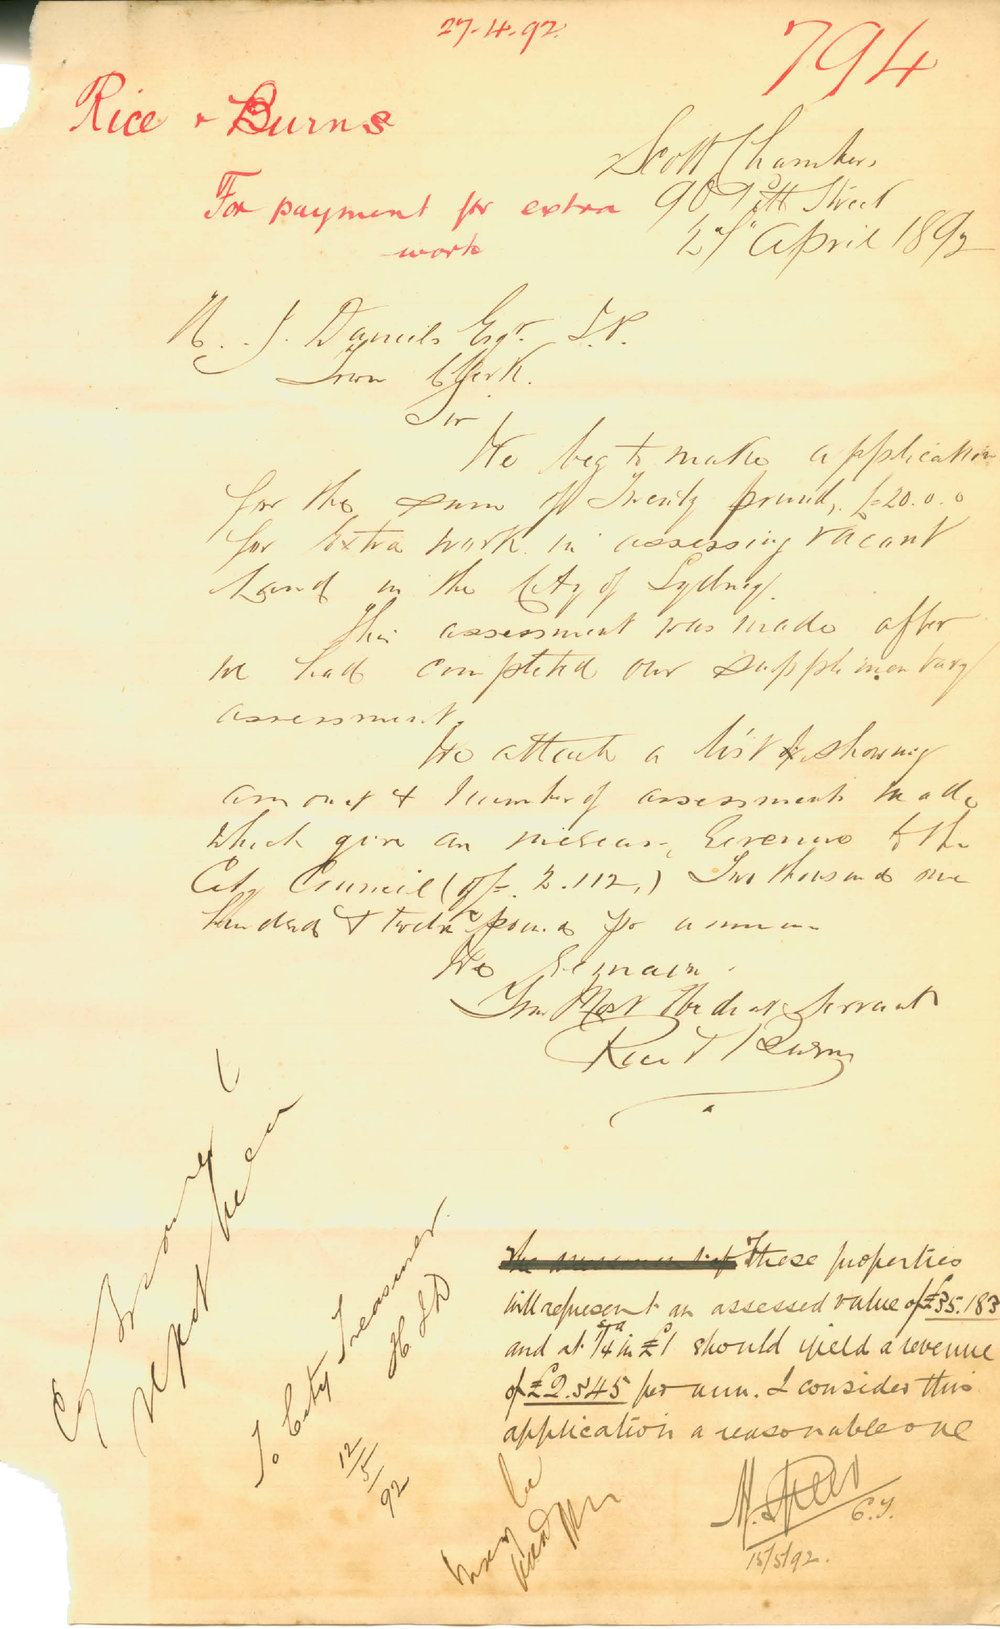 27.4.92.
794
Rice & Burns
For payment for extra
work
Scott Chambers
90 Pitt Street
27" April 1892
H. J. Daniels Esqr. J.P.
Town Clerk.
Sir
We beg to make application
for the sum of Twenty pounds, £20.0.0
for Extra work in assessing vacant
Land in the City of Sydney.
This assessment was made after
we had completed our supplimentary
assessment.
We attach a list showing
amount & number of assessments made
which give an increase revenue to the
City Council (of £2.112.) Two thousand one
hundred & twelve pounds per annum
We remain
Your Most Obedient Servants
Rice & Burns
These properties
will represent an assessed value of £35.183
and at 1/4 in £1 should yield a revenue
of £2.345 per ann. I consider this
application a reasonable one
C.T.
15/5/92.
To City Treasurer
12/5/92
may be